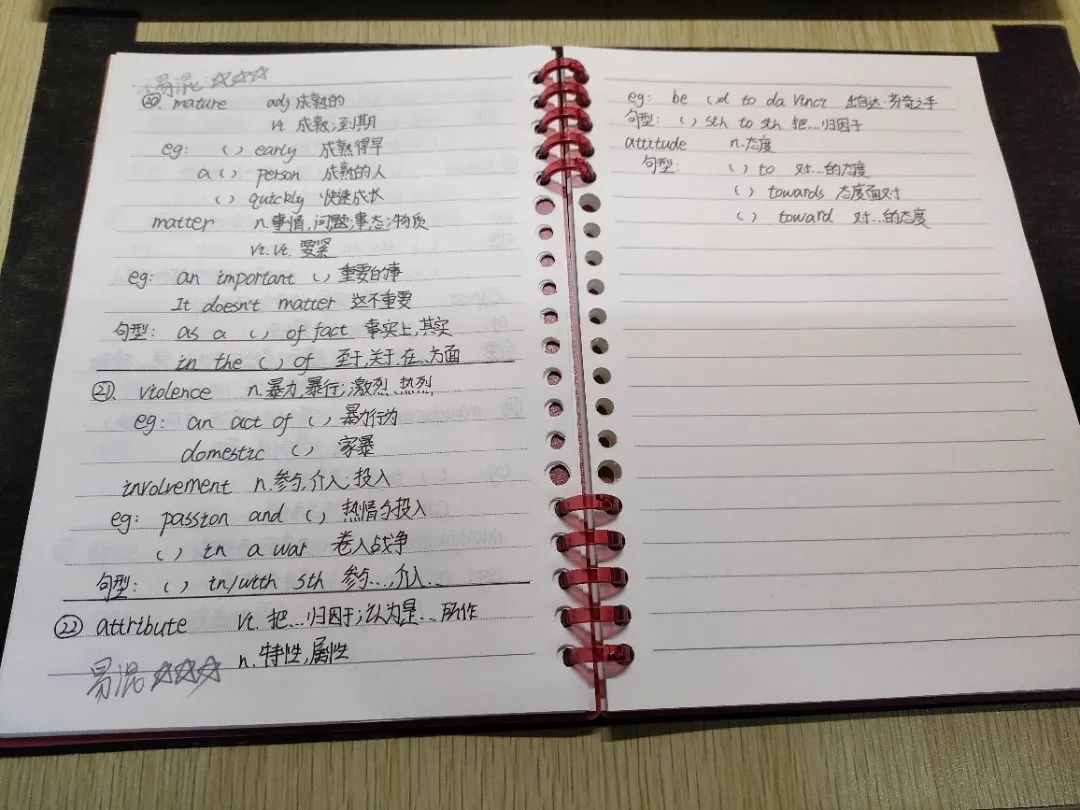 易混 ☆☆☆
⑳ mature adj 成熟的
vt 成熟;到期
eg: ( ) early 成熟得早
a ( ) person 成熟的人
( ) quickly 快速成长
matter n.事情,问题;事态;物质
vt.vt. 要紧
eg: an important ( ) 重要的事
It doesn't matter 这不重要
句型: as a ( ) of fact 事实上,其实
in the ( ) of 至于,关于,在...方面
㉑ violence n.暴力,暴行;激烈,热烈
eg: an act of ( ) 暴力行为
domestic ( ) 家暴
involvement n.参与,介入;投入
eg: passion and ( ) 热情与投入
( ) in a war 卷入战争
句型: ( ) in/with sth 参与...,介入...
㉒ attribute vt. 把...归因于;认为是...所作
n.特性,属性
易混 ☆☆☆
eg: be ( )d to da Vinci 出自达·芬奇之手
句型: ( ) sth to sth 把...归因于
attitude n.态度
句型: ( ) to 对...的态度
( ) towards 态度面对
( ) toward 对...的态度